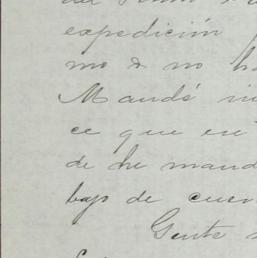 expedición
mo ó no h
Mandé in
ce que en
de he mand
bajo de cuer
Gente